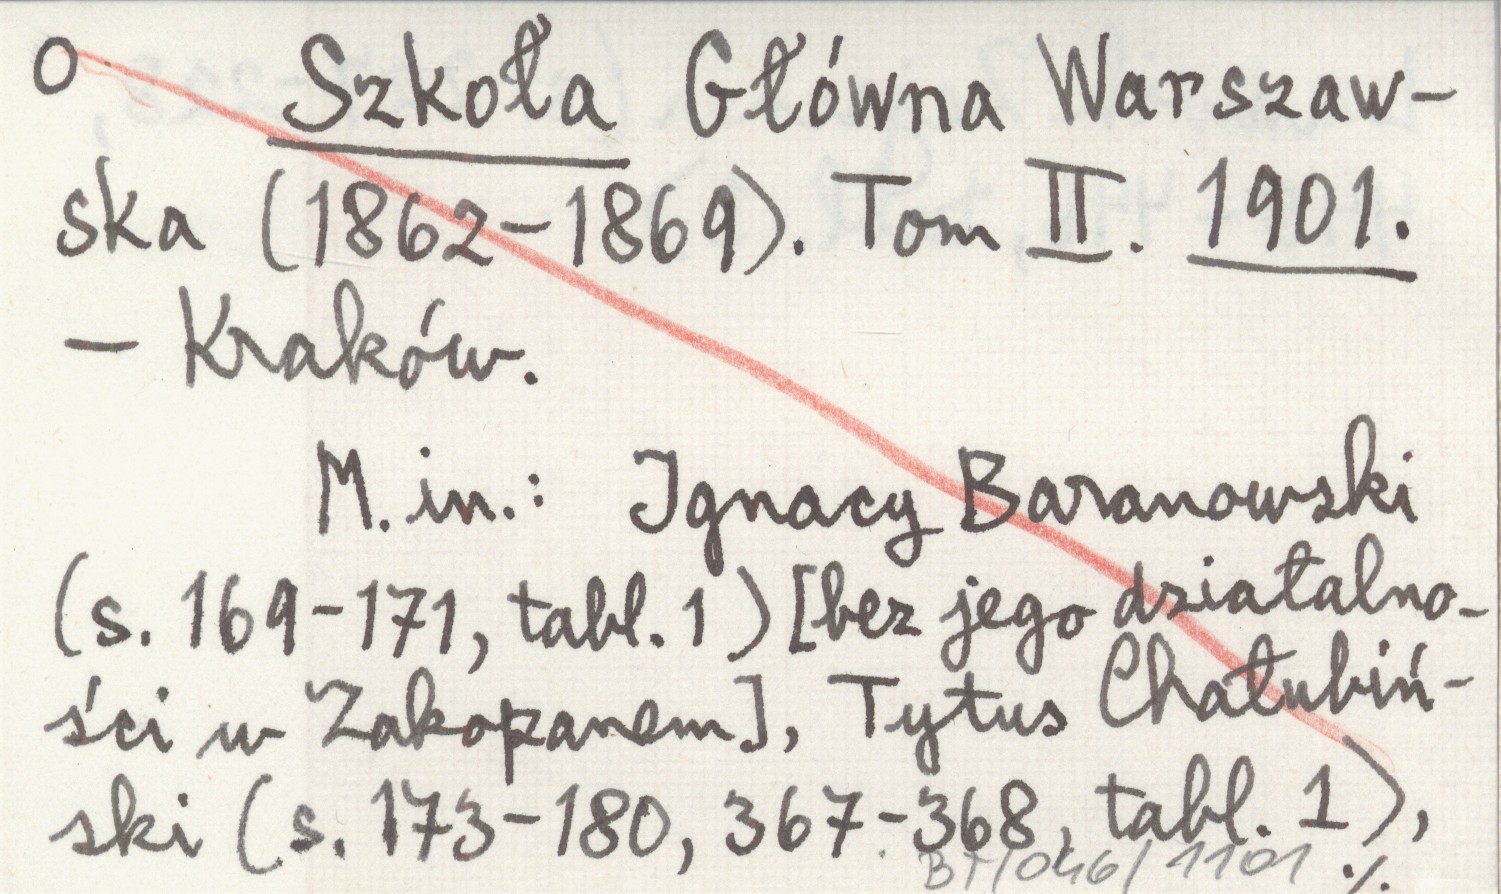 O Szkoła Główna Warszaw-
ska (1862-1869). Tom II. 1901.
- Kraków.
M. in.: Ignacy Baranowski
(s. 169-171, tabl. 1) [bez jego działalno-
ści w Zakopanem], Tytus Chałubiń-
ski (s. 173-180, 367-368, tabl. 1),
BT/046/1101 ./.